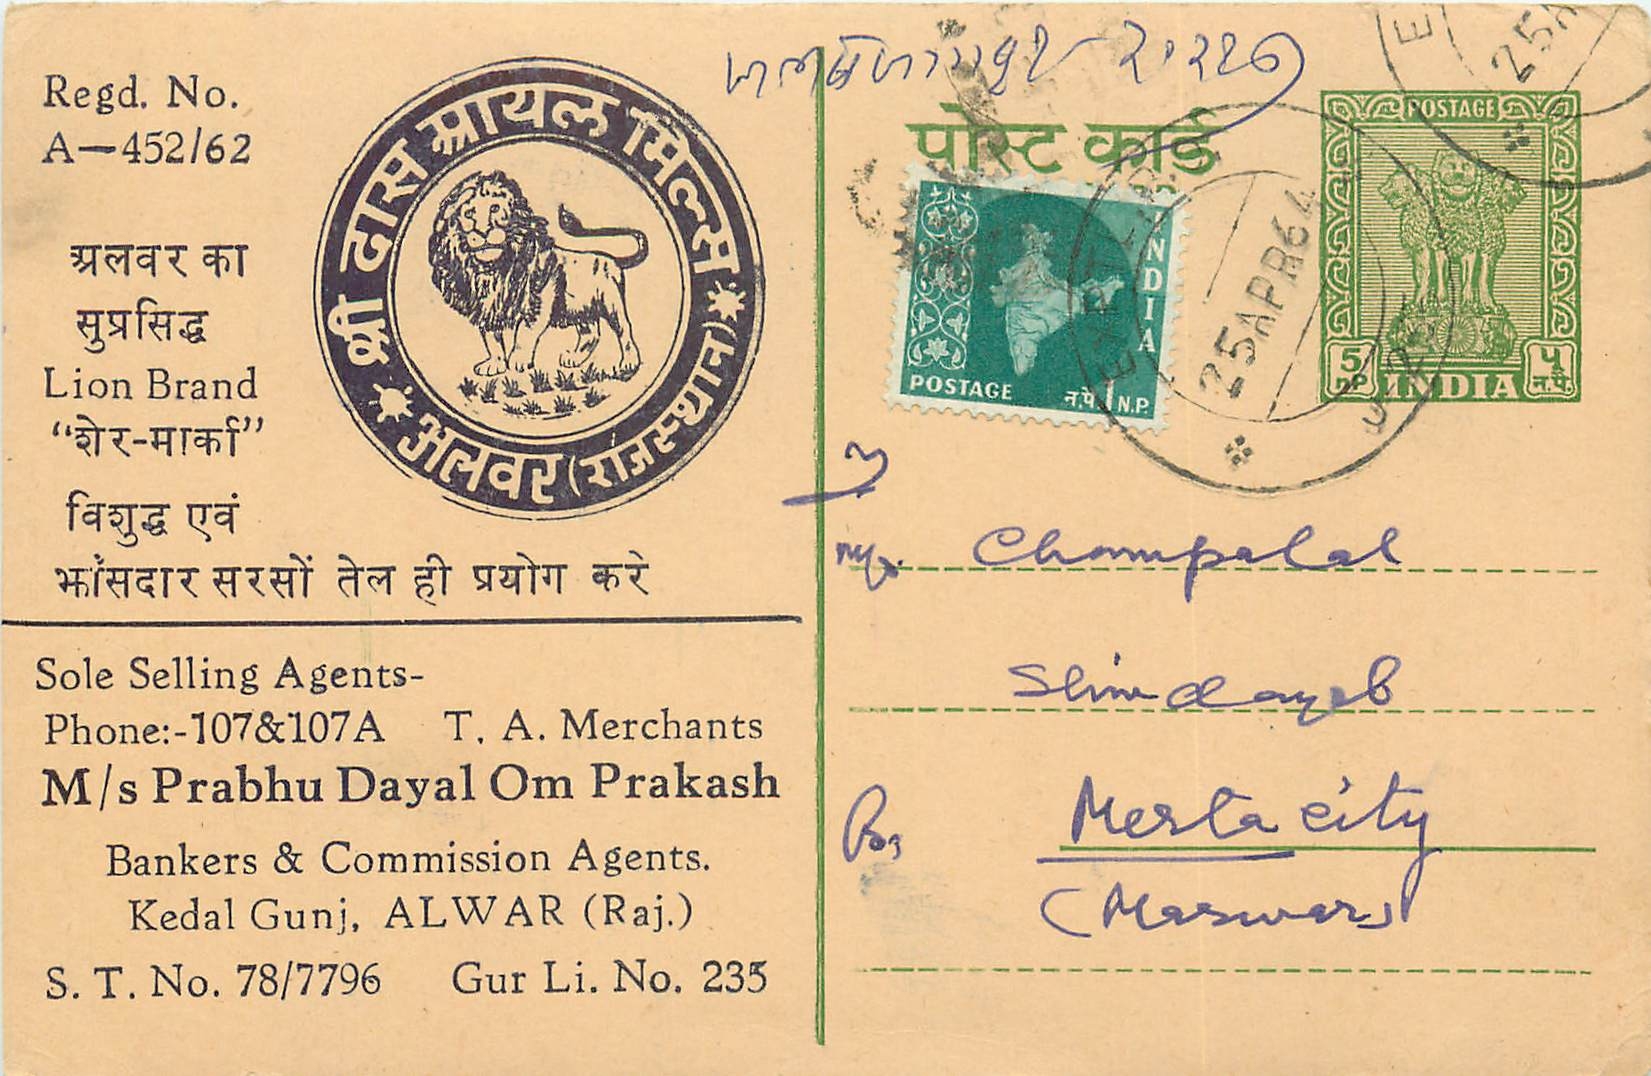 Regd. No.
A—452/62
श्री दास आयल मिल्स
अलवर (राजस्थान)
अलवर का
सुप्रसिद्ध
Lion Brand
“शेर-मार्का”
विशुद्ध एवं
झांसदार सरसों तेल ही प्रयोग करे
Sole Selling Agents-
Phone:-107&107A T. A. Merchants
M/s Prabhu Dayal Om Prakash
Bankers & Commission Agents.
Kedal Gunj, ALWAR (Raj.)
S. T. No. 78/7796 Gur Li. No. 235
पोस्ट कार्ड
INDIA
POSTAGE न.पै. 1 N.P.
25APR64
25A
POSTAGE
5 NP INDIA ५ न.पै.
Champalal
Merta city
(Marwar)